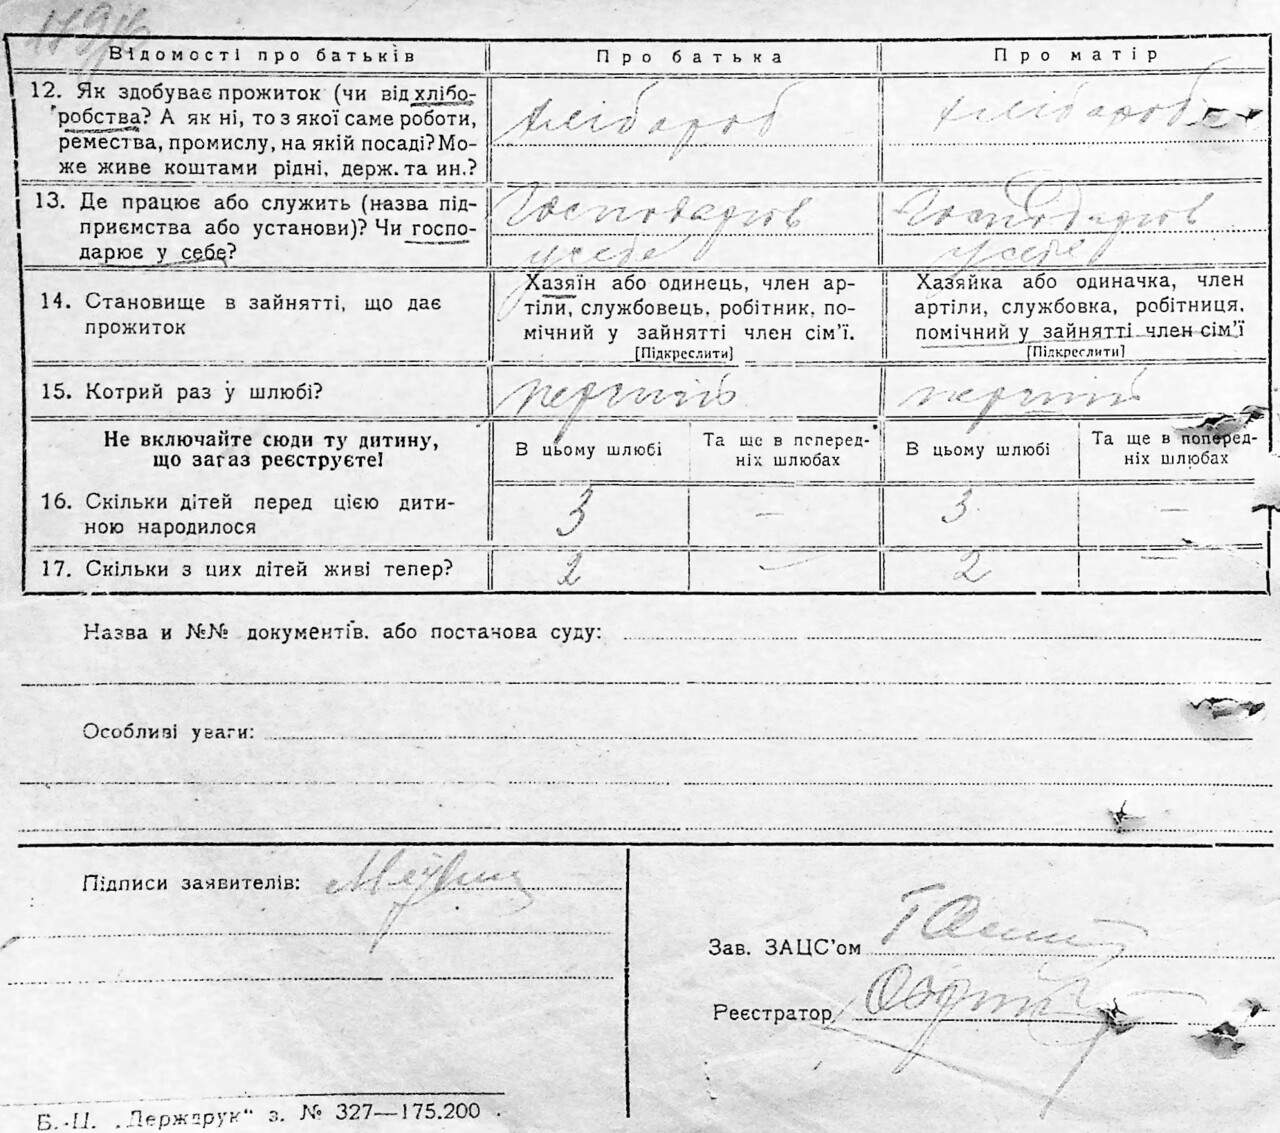 Відомості про батьків
Про батька
Про матір
12. Як здобуває прожиток (чи від хлібо-
робства? А як ні, то з якої саме роботи,
ремества, промислу, на якій посаді? Мо-
же живе коштами рідні, держ. та ин.?
хлібороб
хлібороб
13. Де працює або служить (назва під-
приємства або установи)? Чи госпо-
дарює у себе?
Господарює
у себе
Господарює
у себе
14. Становище в зайнятті, що дає
прожиток
Хазяїн або одинець, член ар-
тіли, службовець, робітник, по-
мічний у зайнятті член сім'ї.
[Підкреслити]
Хазяйка або одиначка, член
артіли, службовка, робітниця,
помічний у зайнятті член сім'ї
[Підкреслити]
15. Котрий раз у шлюбі?
перший
перший
Не включайте сюди ту дитину,
що загаз реєструєте!
В цьому шлюбі
Та ще в поперед-
ніх шлюбах
В цьому шлюбі
Та ще в поперед-
ніх шлюбах
16. Скільки дітей перед цією дити-
ною народилося
3
—
3
—
17. Скільки з цих дітей живі тепер?
2
—
2
—
Назва и №№ документів. або постанова суду:
Особливі уваги:
Підписи заявителів:
Зав. ЗАЦС'ом
Реєстратор
Б.-Ц. „Держдрук" з. № 327—175.200